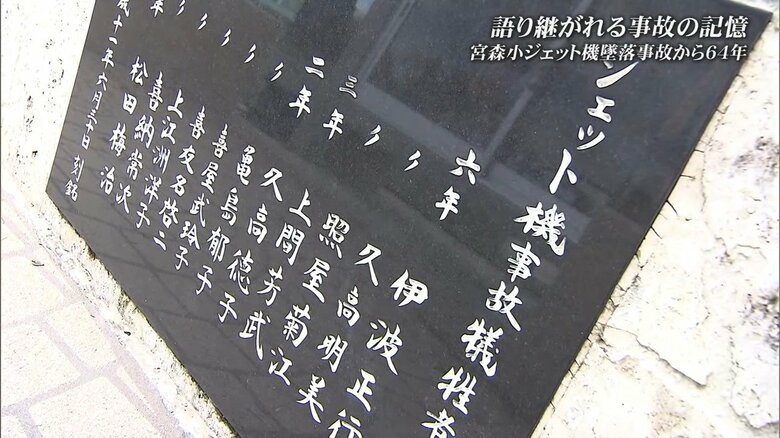 語り継がれる事故の記憶
宮森小ジェット機墜落事故から64年
ジェット機事故犠牲者
六年 伊波正行
〃 久高明美
〃 照屋菊江
三年 上間芳武
二年 久高徳子
〃 亀島郁子
〃 喜屋武玲子
〃 喜友名啓二
〃 上江洲洋子
〃 喜納常次
年 松田梅治
成十一年六月三十日 刻銘